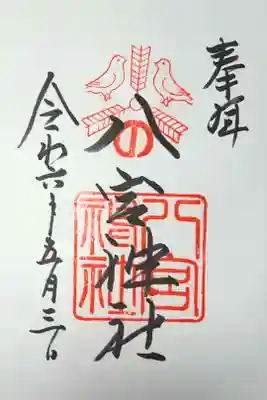 奉拝
八宮神社
令和六年五月三日
八宮
神社